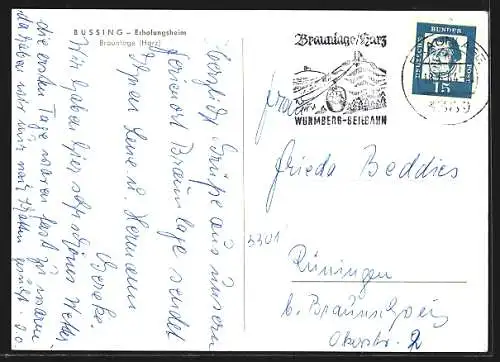 BÜSSING – Erholungsheim
Braunlage (Harz)
Herzliche Grüße aus unserm
Ferienort Braunlage sendet
Ihnen Lene u. Hermann
Gereke.
Wir haben hier sehr schönes Wetter
die ersten Tage waren fast zu warm
da haben wir nur nach Schatten gesucht. d.o.
Braunlage/Harz
WURMBERG-SEILBAHN
DEUTSCHE BUNDESPOST
15
Frau
Frieda Beddies
3301
Rüningen
b. Braunschweig
Okerstr. 2